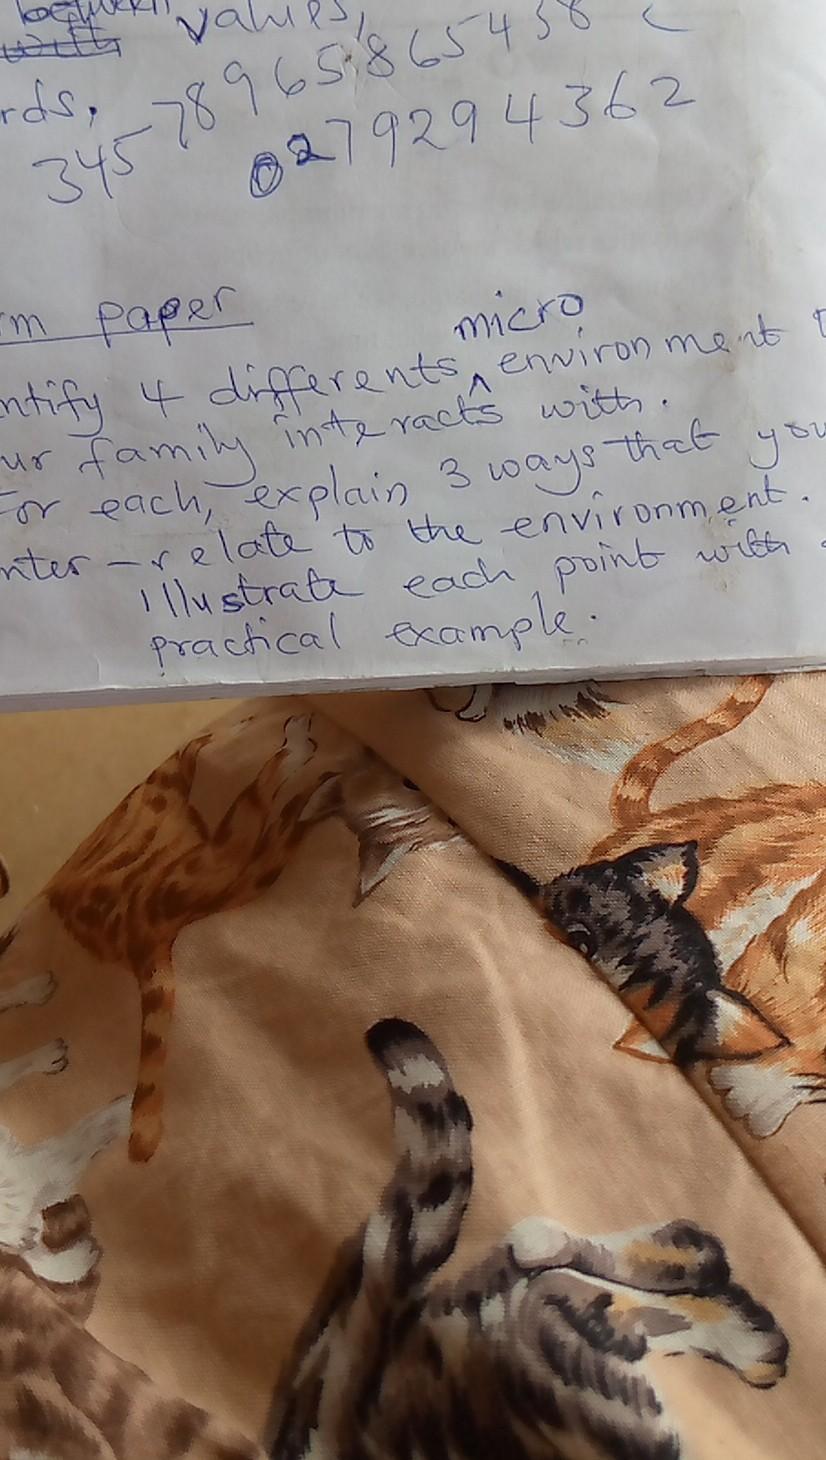 between values,
with
rds.
345 78965865438
0279294362
m paper
micro
ntify 4 differents ^ environment
ur family interacts with.
For each, explain 3 ways that you
nter-relate to the environment.
Illustrate each point with
practical example.